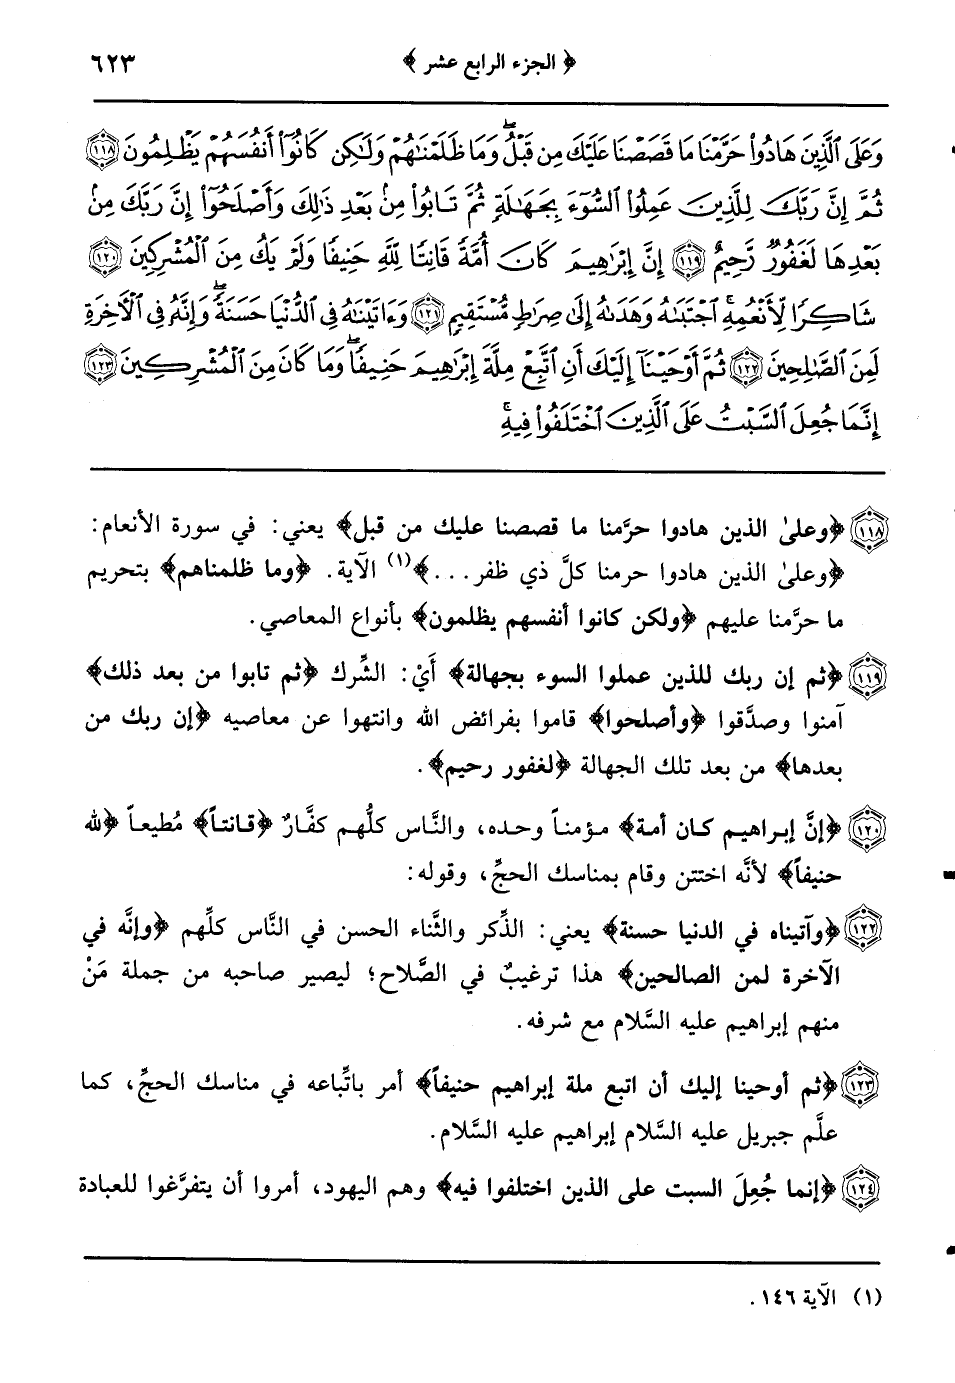 ﴿ الجزء الرابع عشر ﴾ ٦٢٣
وَعَلَى ٱلَّذِينَ هَادُوا۟ حَرَّمْنَا مَا قَصَصْنَا عَلَيْكَ مِن قَبْلُ ۖ وَمَا ظَلَمْنَٰهُمْ وَلَٰكِن كَانُوٓا۟ أَنفُسَهُمْ يَظْلِمُونَ ١١٨
ثُمَّ إِنَّ رَبَّكَ لِلَّذِينَ عَمِلُوا۟ ٱلسُّوٓءَ بِجَهَٰلَةٍ ثُمَّ تَابُوا۟ مِنۢ بَعْدِ ذَٰلِكَ وَأَصْلَحُوٓا۟ إِنَّ رَبَّكَ مِنۢ
بَعْدِهَا لَغَفُورٌ رَّحِيمٌ ١١٩ إِنَّ إِبْرَٰهِيمَ كَانَ أُمَّةً قَانِتًا لِّلَّهِ حَنِيفًا وَلَمْ يَكُ مِنَ ٱلْمُشْرِكِينَ ١٢٠
شَاكِرًا لِّأَنْعُمِهِ ۚ ٱجْتَبَىٰهُ وَهَدَىٰهُ إِلَىٰ صِرَٰطٍ مُّسْتَقِيمٍ ١٢١ وَءَاتَيْنَٰهُ فِى ٱلدُّنْيَا حَسَنَةً ۖ وَإِنَّهُۥ فِى ٱلْءَاخِرَةِ
لَمِنَ ٱلصَّٰلِحِينَ ١٢٢ ثُمَّ أَوْحَيْنَآ إِلَيْكَ أَنِ ٱتَّبِعْ مِلَّةَ إِبْرَٰهِيمَ حَنِيفًا ۖ وَمَا كَانَ مِنَ ٱلْمُشْرِكِينَ ١٢٣
إِنَّمَا جُعِلَ ٱلسَّبْتُ عَلَى ٱلَّذِينَ ٱخْتَلَفُوا۟ فِيهِ ۚ
١١٨ ﴿وعلىٰ الذين هادوا حرَّمنا ما قصصنا عليك من قبل﴾ يعني: في سورة الأنعام:
﴿وعلىٰ الذين هادوا حرمنا كلَّ ذي ظفر...﴾(١) الآية. ﴿وما ظلمناهم﴾ بتحريم
ما حرَّمنا عليهم ﴿ولكن كانوا أنفسهم يظلمون﴾ بأنواع المعاصي.
١١٩ ﴿ثم إن ربك للذين عملوا السوء بجهالة﴾ أَيْ: الشِّرك ﴿ثم تابوا من بعد ذلك﴾
آمنوا وصدَّقوا ﴿وأصلحوا﴾ قاموا بفرائض الله وانتهوا عن معاصيه ﴿إن ربك من
بعدها﴾ من بعد تلك الجهالة ﴿لغفور رحيم﴾.
١٢٠ ﴿إنَّ إبراهيم كان أمة﴾ مؤمناً وحده، والنَّاس كلُّهم كفَّارٌ ﴿قانتاً﴾ مُطيعاً ﴿لله
حنيفاً﴾ لأنَّه اختتن وقام بمناسك الحجِّ، وقوله:
١٢٢ ﴿وآتيناه في الدنيا حسنة﴾ يعني: الذِّكر والثَّناء الحسن في النَّاس كلِّهم ﴿وإنَّه في
الآخرة لمن الصالحين﴾ هذا ترغيبٌ في الصَّلاح؛ ليصير صاحبه من جملة مَنْ
منهم إبراهيم عليه السَّلام مع شرفه.
١٢٣ ﴿ثم أوحينا إليك أن اتبع ملة إبراهيم حنيفاً﴾ أمر باتِّباعه في مناسك الحجِّ، كما
علَّم جبريل عليه السَّلام إبراهيم عليه السَّلام.
١٢٤ ﴿إنما جُعِلَ السبت على الذين اختلفوا فيه﴾ وهم اليهود، أمروا أن يتفرَّغوا للعبادة
(١) الآية ١٤٦.